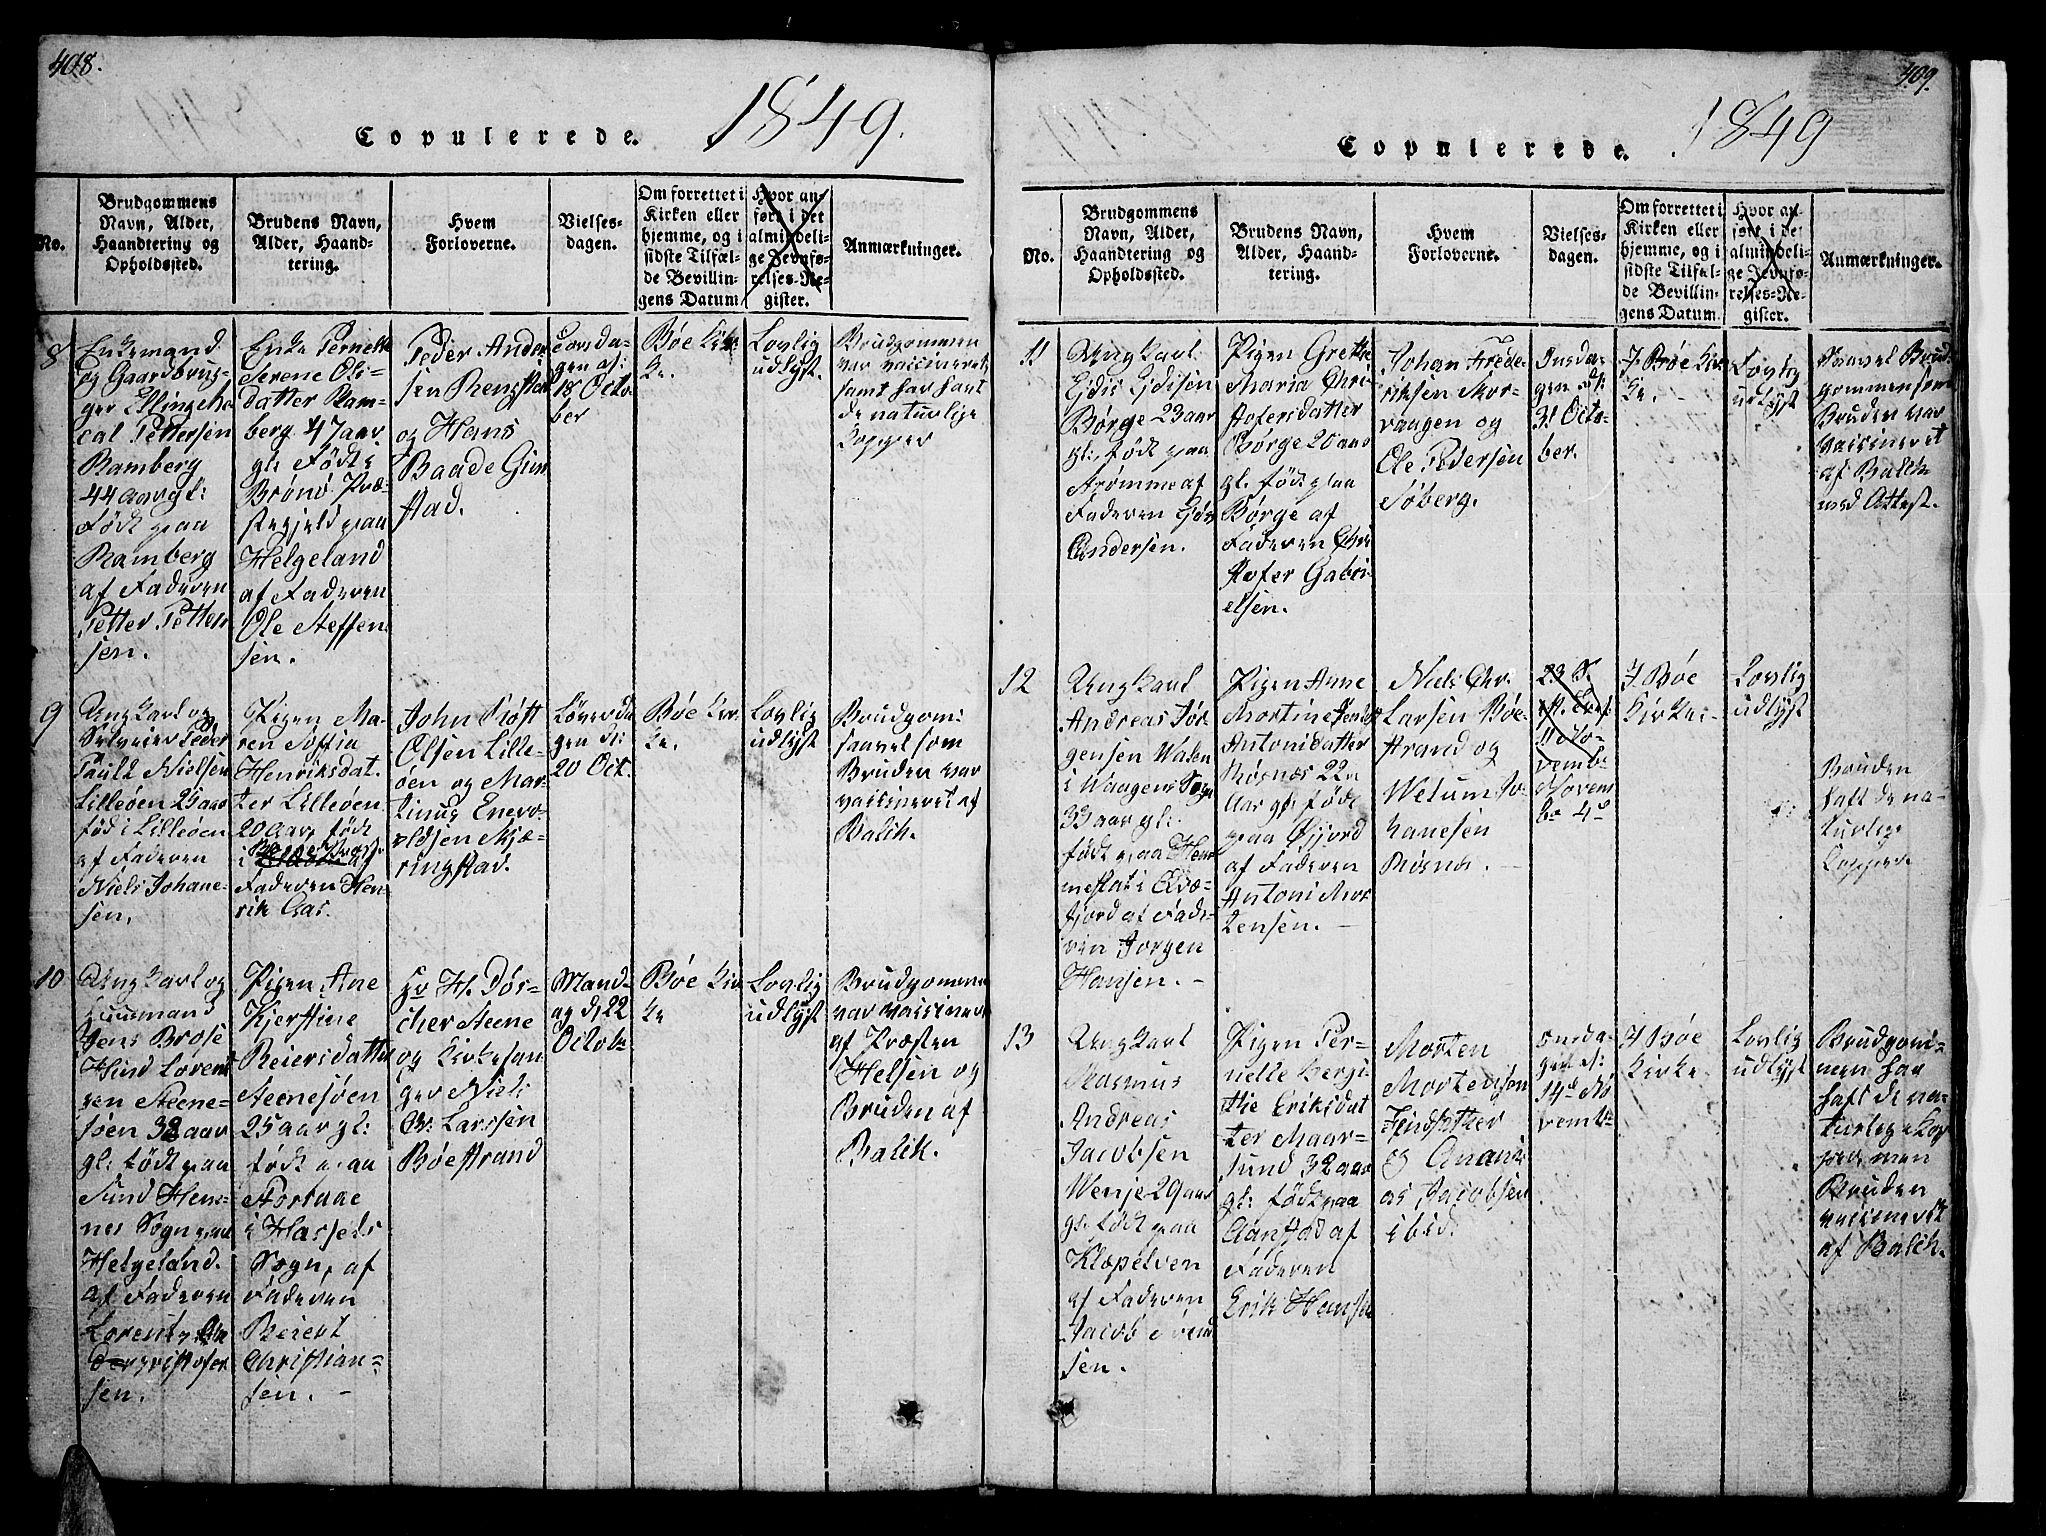 408.
Copulerede. 1849.
No.
Brudgommens
Navn, Alder,
Haandtering og
Opholdssted.
Brudens Navn,
Alder, Haand-
tering.
Hvem
Forloverne.
Vielses-
dagen.
Om forrettet i
Kirken eller
hjemme, og i
sidste Tilfæl-
de Bevillin-
gens Datum
Hvor an-
ført i det
almindeli-
ge Jevnfø-
relses-Re-
gister.
Anmærkninger.
8
Enkemand
og Gaardbrug-
ger Ellingeho
cal Pettersen
Ramberg
44 aar gl:
Født paa
Ramberg
af Faderen
Petter Petter
sen.
Enke Pernelle
Serene Oli-
datter Ram-
berg 47 aar
gl: Født
Brønø Præ-
stegjeld paa
Helgeland
af Faderen
Ole Steffen
sen.
Peder Ander
sen Ringstad
og Hans
Baade Gim
stad.
Torsda-
gen d:
18 Octo-
ber
Bøe Kir-
ke.
Lovlig
udlyst.
Brudgommen
var vaccineret
samt har havt
de naturlige
Kopper
9
Ungkarl og
Selveier Peder
Pauld Nielsen
Lilleøen 25 aar
fød i Lilleøen
af Faderen
Niels Johane-
sen.
Pigen Ma-
ren Soffia
Henriksdat-
ter Lilleøen
20 aar, født
i af
Faderen Hen-
rik Aas.
John Røst
Olsen Lille-
øen og Mar-
tinus Enevo-
ldsen Skjæ-
ringstad.
Løverda
gen d:
20 Oct.
Bøe Kir-
ke.
Lovlig
udlyst
Brudgom:
saavel som
Bruden var
vaccineret af
Balch.
10
Ungkarl og
Huusmand
Jens Brose
Hind Lorent
zen Steene-
søen 32 aar
gl: født paa
Sund Hem-
nes Sogn paa
Helgeland
af Faderen
Lorentz
Christofer
sen.
Pigen Ane
Kjerstine
Beiersdatter
Steenesøen
25 aar gl:
født paa
Fortune
i Hassels
Sogn, af
Faderen
Beient
Christian-
sen. –
Hr H. Dør-
cher Steene
og Kirkesan
ger Niels
Chr. Larssen
Bøestrand
Mand-
ag d, 22
Octobr
Bøe Kir
ke
Lovlig
udlyst
Brudgommen
var vaccineret
af Præsten
Helsen og
Bruden af
Balch.
409.
Copulerede. 1849
No.
Brudgommens
Navn, Alder,
Haandtering og
Opholdssted.
Brudens Navn,
Alder, Haand-
tering.
Hvem
Forloverne.
Vielses-
dagen.
Om forrettet i
Kirken eller
hjemme, og i
sidste Tilfæl-
de Bevillin-
gens Datum.
Hvor an-
ført i det
almindeli-
ge Jevnfø-
relses-Re-
gister.
Anmærkninger.
11
Ungkarl
Gjdis Gjdisen
Børge 23 aar
gl:, født paa
Strømme af
Faderen Gjds
Andersen.
Pigen Grethe
Maria Chri-
stofersdatter
Børge 20 aar
gl: født paa
Børge af
Faderen Chri
stofer Gabri-
elsen.
Johan Frede-
riksen Skor-
vaagen og
Ole Pedersen
Søberg.
Onsda-
gen d:
31 Octo-
ber.
I Bøe Kir-
ke. –
Lovlig
udlyst
Saavel Brud
gommen som
Bruden var
vaccineret
af Balch
med Attest.
12
Ungkarl
Andreas Jør-
gensen Walen
i Waagens Sogn
33 aar gl:
født paa Hem
mestat i Evæ-
fjord af Fade-
ren Jørgen
Hansen. –
Pigen Anne
Mortine
Antonidatter
Røsnæs 22
Aar gl: født
paa Øfjord
af Faderen
Antoni Mor
tensen. –
Niels Chr.
Larsen Bøe-
strand og
Welum Jo-
hanesen
Røsnæs. –
23 S.
11 No-
vemb
Novem
br 4de
I Bøe
Kirke.
Lovlig
udlyst
Bruden
haft de na-
turlige
Kopper.
13
Ungkarl
Rasmus
Andreas
Jacobsen
Wenje 29 aar
gl: født paa
Klopelven
af Faderen
Jacob Svend
sen.
Pigen Per-
nelle Bergi-
the Eriksdat
ter Maar-
sund 32 aar
gl: født paa
Aanstad af
Faderen
Erik Hansen
Morten
Mortensen
Findsæther
og Anani-
as Jacobsen
ibid.
Onsda-
gen d:
14de No
vembr
I Bøe
Kirke.
Lovlig
udlyst
Brudgom-
men har
haft de na-
turlige Kop
per, men
Bruden
vaccineret
af Balch.